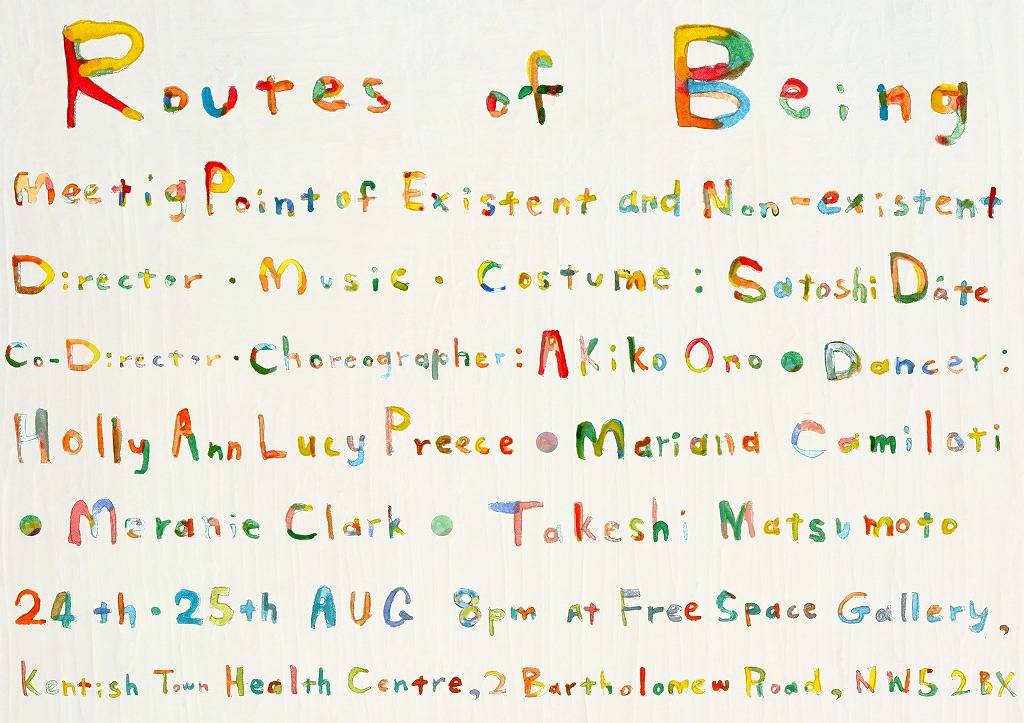 Routes of Being
Meetig Point of Existent and Non-existent
Director · Music · Costume : Satoshi Date
Co-Director · Choreographer : AKiko Ono ● Dancer :
Holly Ann Lucy Preece ● Mariana Camiloti
● Meranie Clark ● Takeshi Matsumoto
24th · 25th AUG 8pm AT Free Space Gallery,
Kentish Town Health Centre, 2 Bartholomew Road, NW5 2BX